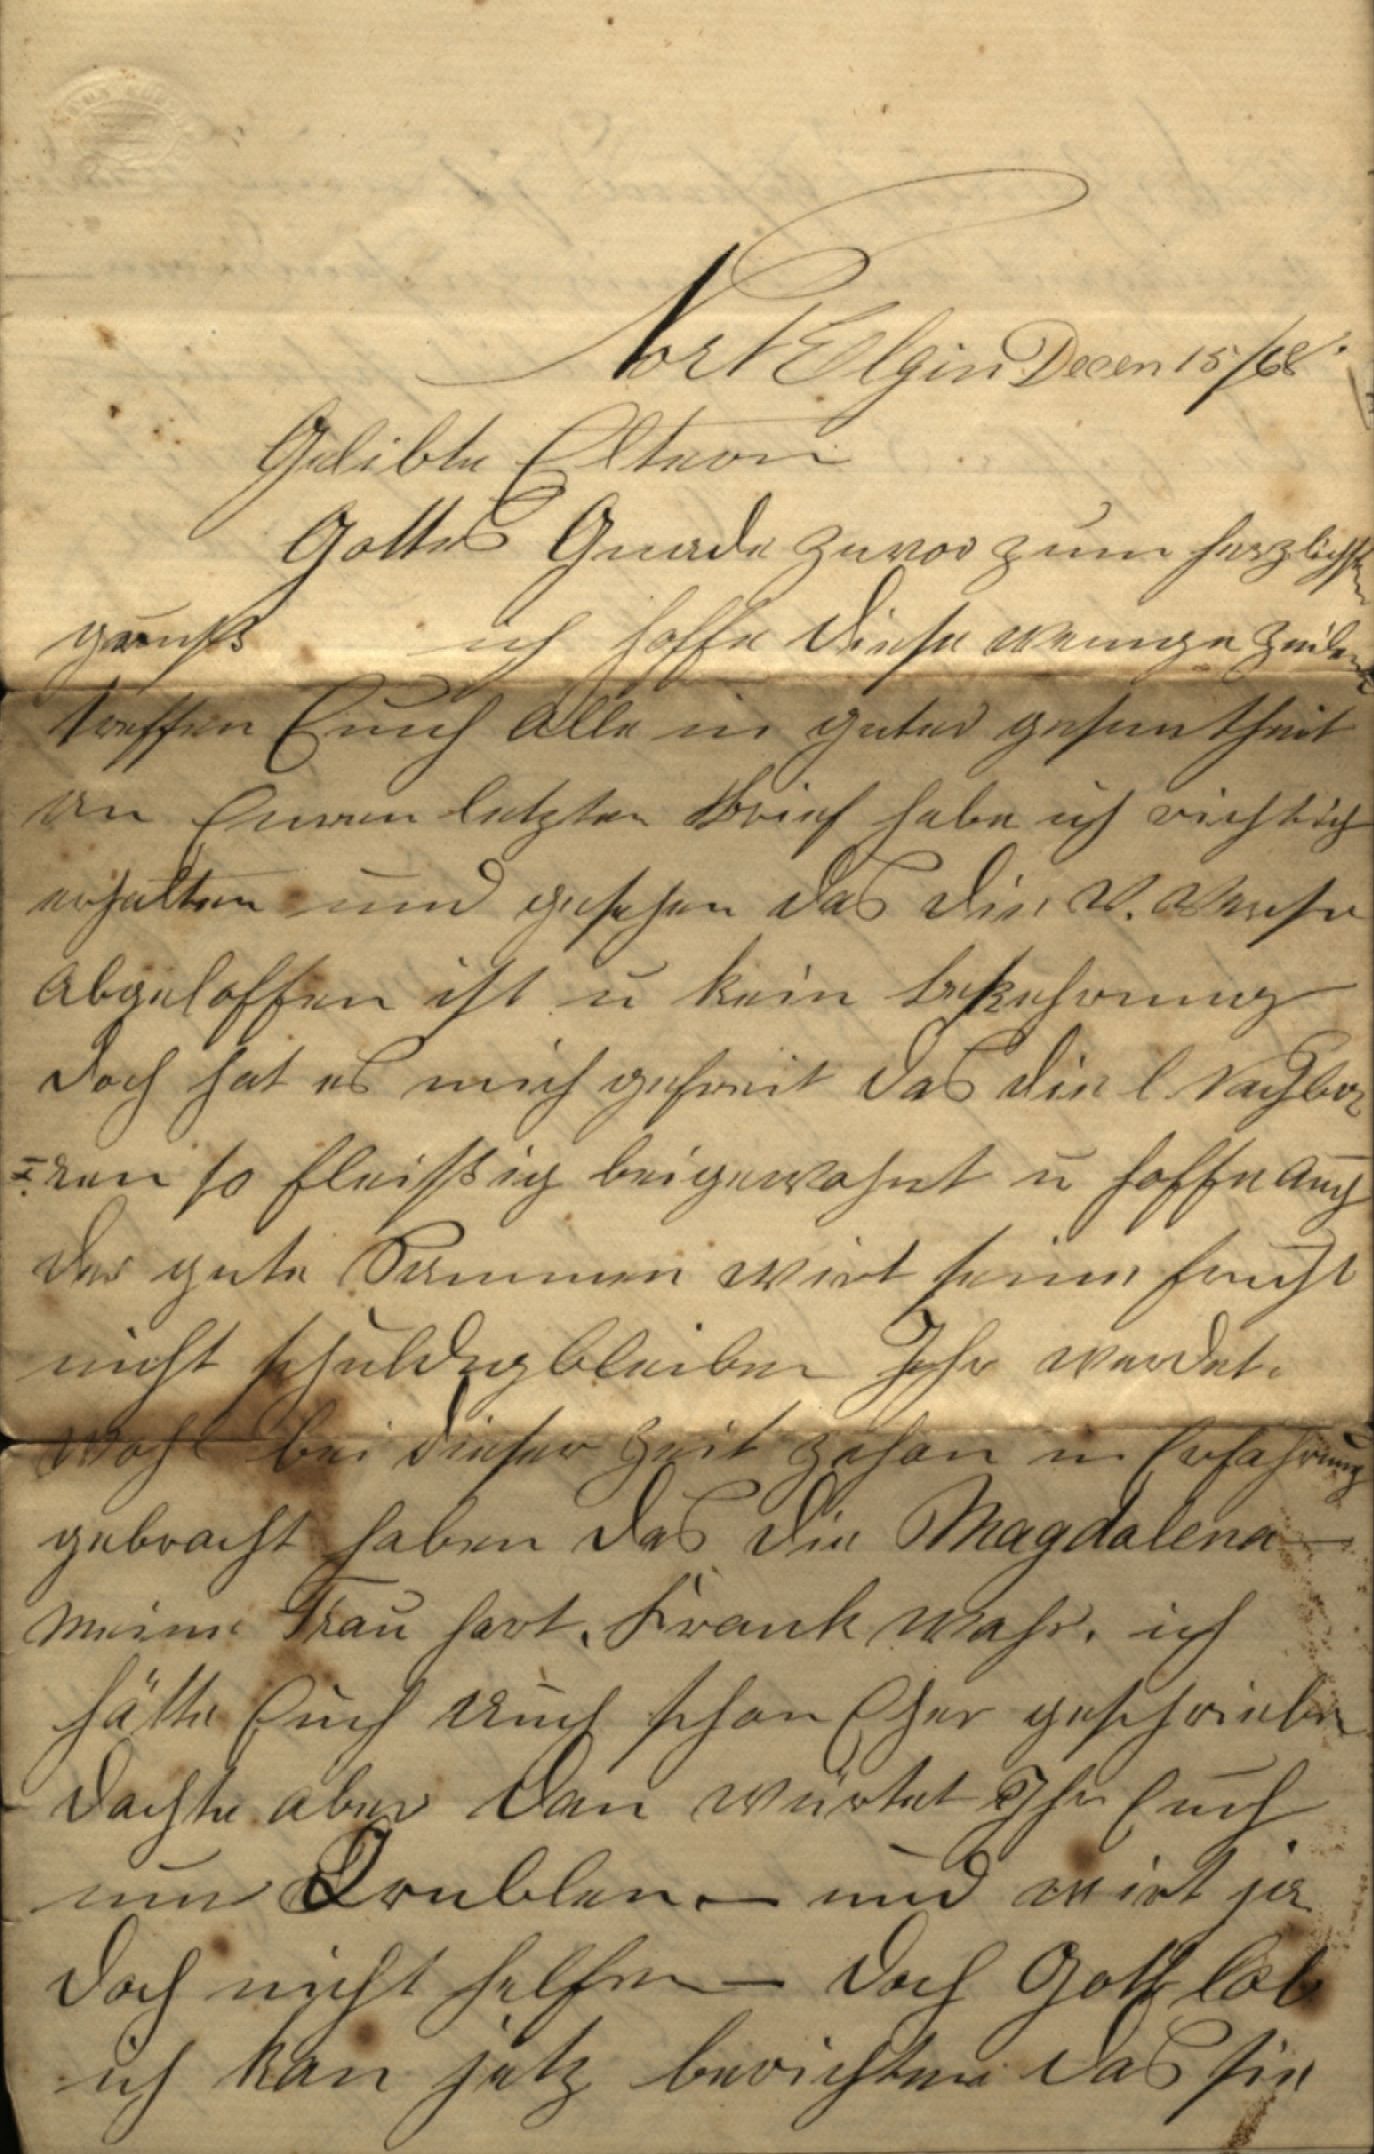 Port Elgin Decem 15/68.
Gelibte Eltern
Gottes Gnade zuvor zum herzlichsten
grusß ich hoffe diese wenige Zeilen
treffen Euch alle in guter gesuntheit
an Euren letzten Brief habe ich richtich
erhalten und gesehen das die V. Verse
abgeloffen ist u kein bekehrung
doch hat es mich gefreit das die l Nachbar
=ren so fleißig beigewohnt u hoffe auch
der gute Sammen wirt seine frucht
nicht schuldig bleiben Jhr werdet
wohl bei dieser Zeit schon in Erfahrung
gebracht haben das die Magdalena
meine Frau hart Krank wahr. ich
hätte Euch auch schon Eher geschrieben
dachte aber dan würtet Ihr Euch
nur Drublen – und wirt ja
doch nicht helfen – doch Gott lob
ich kan jetz berichten das sie